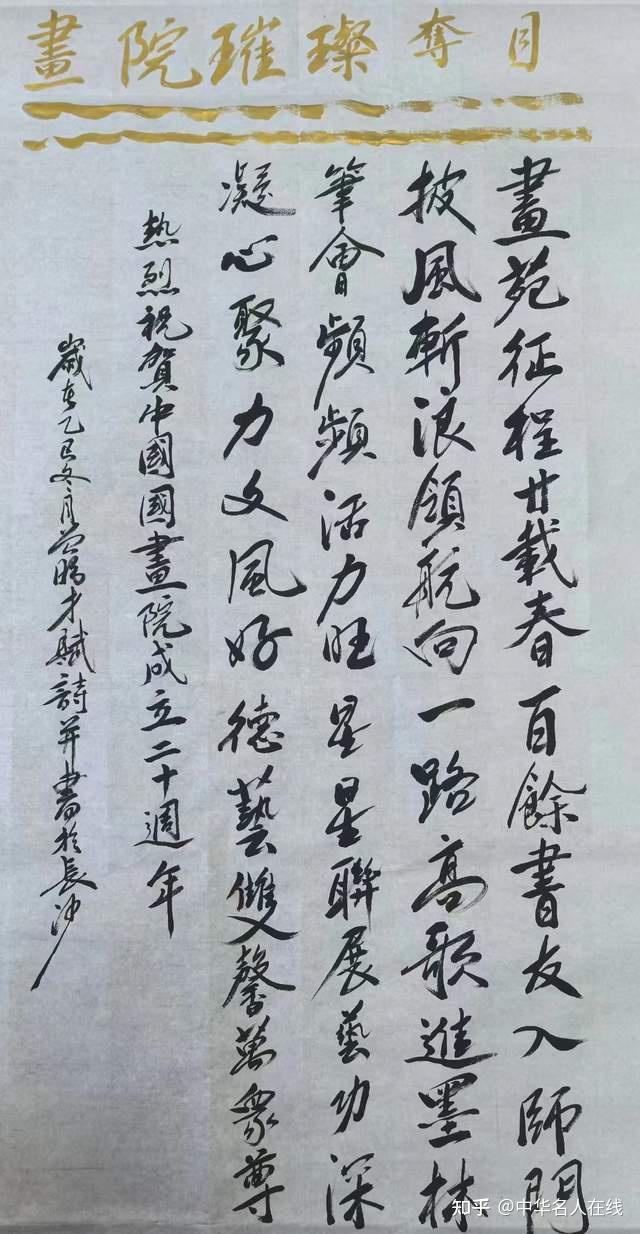 畫院璀璨奪目
畫苑征程廿載春百餘書友入師門
披風斬浪領航向一路高歌進墨林
筆會頻頻活力旺星星聯展藝功深
凝心聚力文風好德藝雙馨萬衆尊
热烈祝賀中國國畫院成立二十週年
歲在乙巳月才賦詩并書於長沙
知乎 @中华名人在线